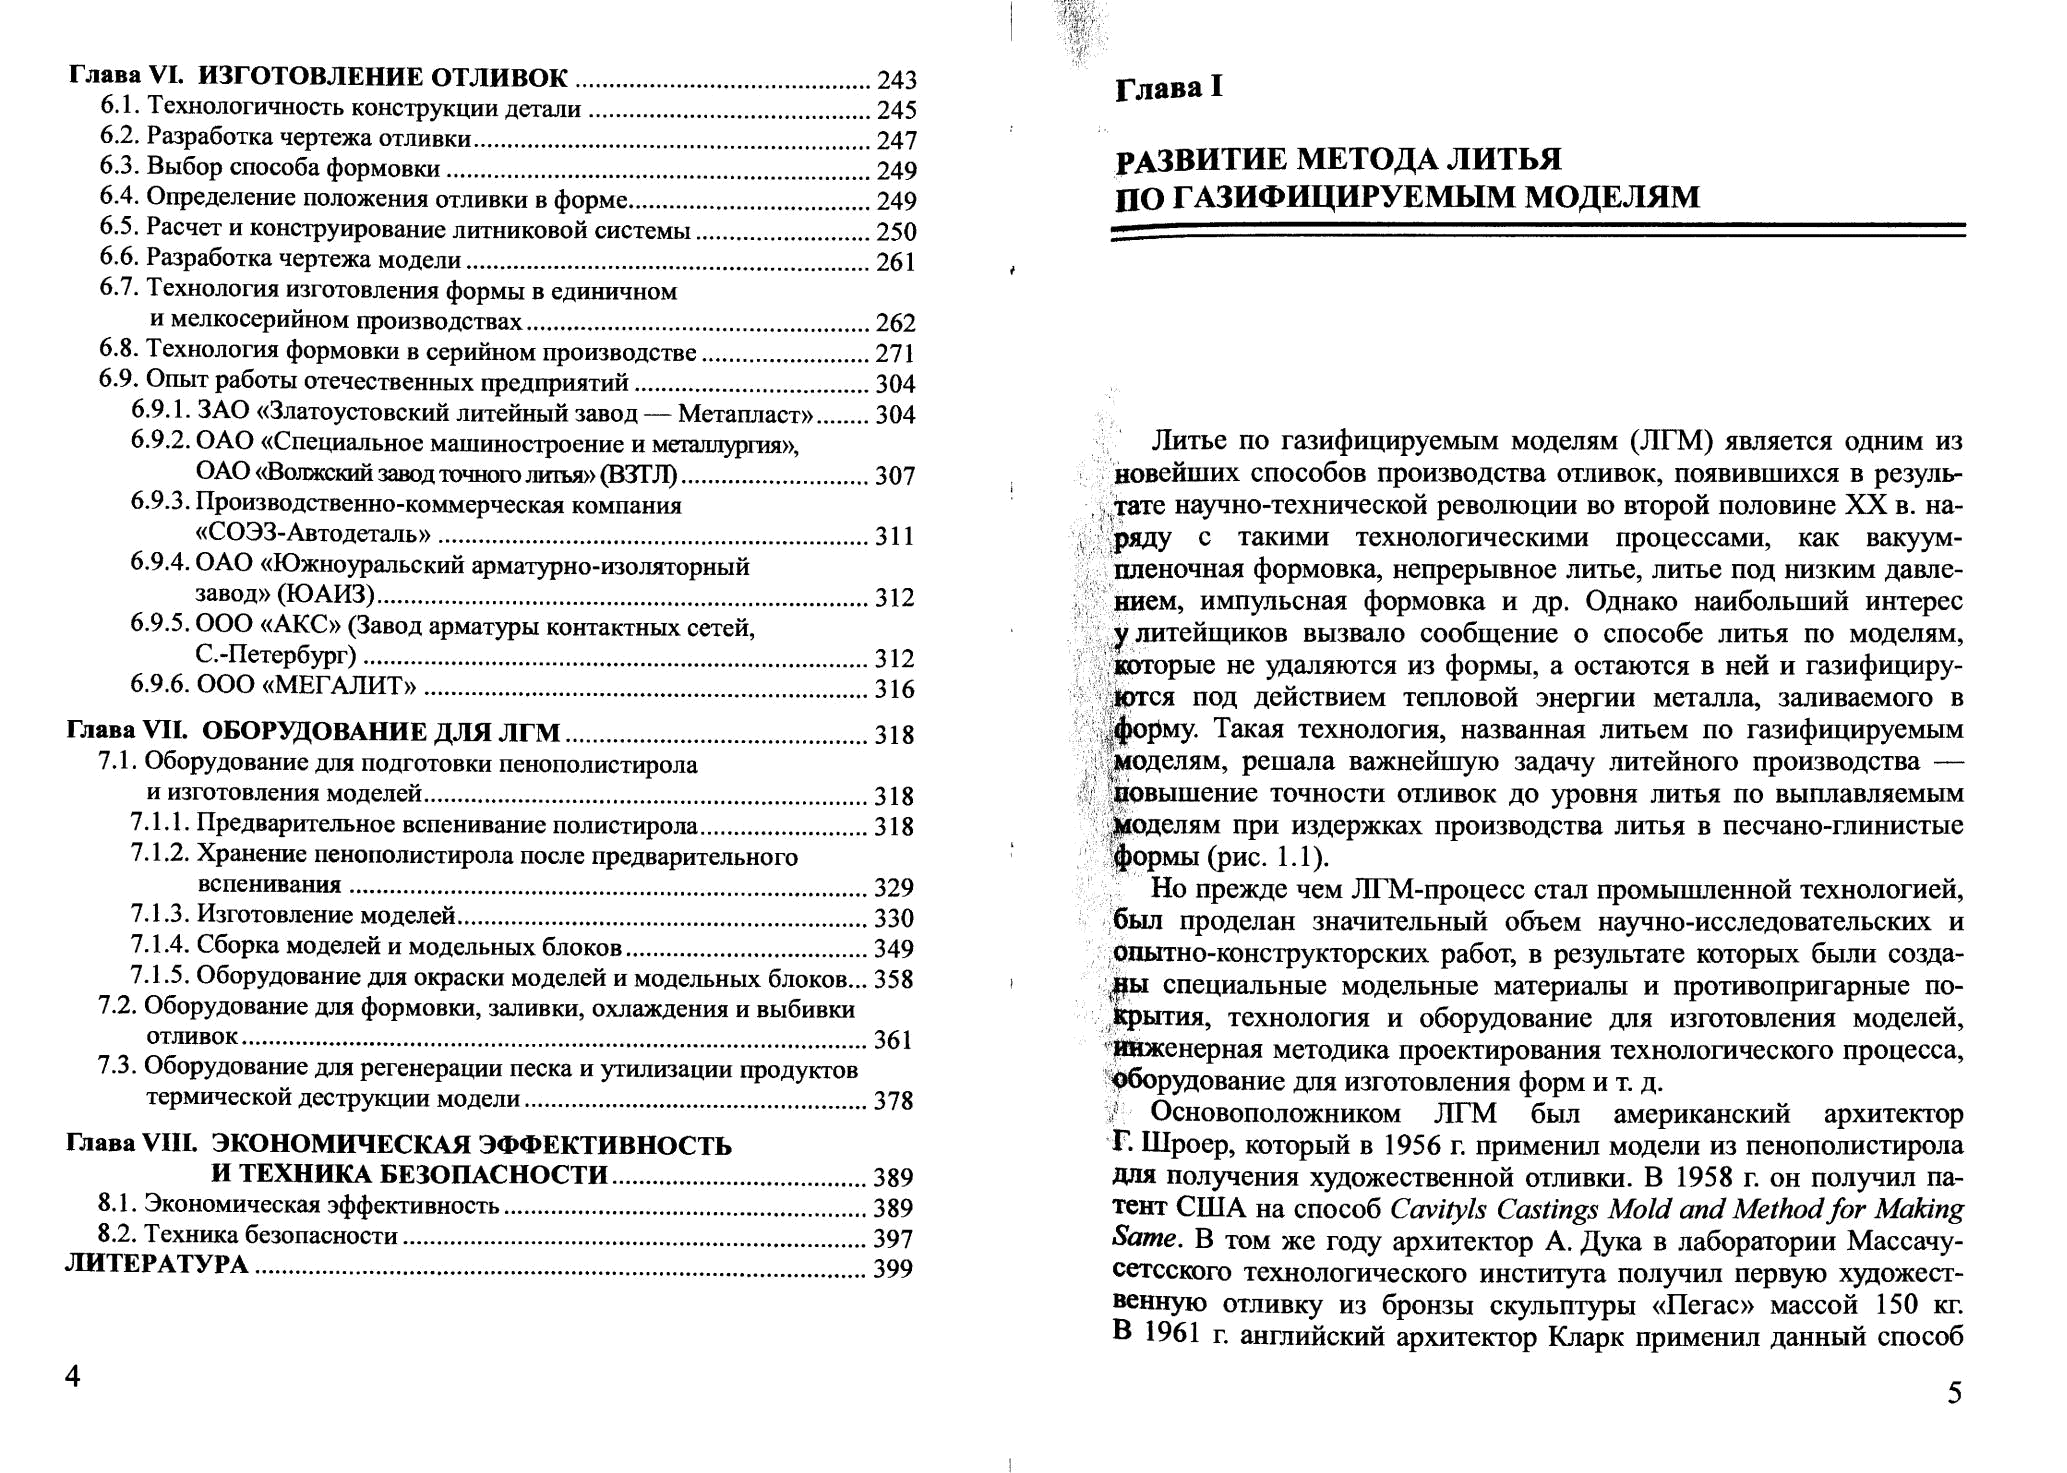 Глава VI. ИЗГОТОВЛЕНИЕ ОТЛИВОК ........ 243
6.1. Технологичность конструкции детали ........ 245
6.2. Разработка чертежа отливки ........ 247
6.3. Выбор способа формовки ........ 249
6.4. Определение положения отливки в форме ........ 249
6.5. Расчет и конструирование литниковой системы ........ 250
6.6. Разработка чертежа модели ........ 261
6.7. Технология изготовления формы в единичном
и мелкосерийном производствах ........ 262
6.8. Технология формовки в серийном производстве ........ 271
6.9. Опыт работы отечественных предприятий ........ 304
6.9.1. ЗАО «Златоустовский литейный завод — Метапласт» ........ 304
6.9.2. ОАО «Специальное машиностроение и металлургия»,
ОАО «Волжский завод точного литья» (ВЗТЛ) ........ 307
6.9.3. Производственно-коммерческая компания
«СОЭЗ-Автодеталь» ........ 311
6.9.4. ОАО «Южноуральский арматурно-изоляторный
завод» (ЮАИЗ) ........ 312
6.9.5. ООО «АКС» (Завод арматуры контактных сетей,
С.-Петербург) ........ 312
6.9.6. ООО «МЕГАЛИТ» ........ 316
Глава VII. ОБОРУДОВАНИЕ ДЛЯ ЛГМ ........ 318
7.1. Оборудование для подготовки пенополистирола
и изготовления моделей ........ 318
7.1.1. Предварительное вспенивание полистирола ........ 318
7.1.2. Хранение пенополистирола после предварительного
вспенивания ........ 329
7.1.3. Изготовление моделей ........ 330
7.1.4. Сборка моделей и модельных блоков ........ 349
7.1.5. Оборудование для окраски моделей и модельных блоков... 358
7.2. Оборудование для формовки, заливки, охлаждения и выбивки
отливок ........ 361
7.3. Оборудование для регенерации песка и утилизации продуктов
термической деструкции модели ........ 378
Глава VIII. ЭКОНОМИЧЕСКАЯ ЭФФЕКТИВНОСТЬ
И ТЕХНИКА БЕЗОПАСНОСТИ ........ 389
8.1. Экономическая эффективность ........ 389
8.2. Техника безопасности ........ 397
ЛИТЕРАТУРА ........ 399
4
Глава I
РАЗВИТИЕ МЕТОДА ЛИТЬЯ
ПО ГАЗИФИЦИРУЕМЫМ МОДЕЛЯМ
Литье по газифицируемым моделям (ЛГМ) является одним из
новейших способов производства отливок, появившихся в резуль-
тате научно-технической революции во второй половине XX в. на-
ряду с такими технологическими процессами, как вакуум-
пленочная формовка, непрерывное литье, литье под низким давле-
нием, импульсная формовка и др. Однако наибольший интерес
у литейщиков вызвало сообщение о способе литья по моделям,
которые не удаляются из формы, а остаются в ней и газифициру-
ются под действием тепловой энергии металла, заливаемого в
форму. Такая технология, названная литьем по газифицируемым
моделям, решала важнейшую задачу литейного производства —
повышение точности отливок до уровня литья по выплавляемым
моделям при издержках производства литья в песчано-глинистые
формы (рис. 1.1).
Но прежде чем ЛГМ-процесс стал промышленной технологией,
был проделан значительный объем научно-исследовательских и
опытно-конструкторских работ, в результате которых были созда-
ны специальные модельные материалы и противопригарные по-
крытия, технология и оборудование для изготовления моделей,
инженерная методика проектирования технологического процесса,
оборудование для изготовления форм и т. д.
Основоположником ЛГМ был американский архитектор
Г. Шроер, который в 1956 г. применил модели из пенополистирола
для получения художественной отливки. В 1958 г. он получил па-
тент США на способ Cavityls Castings Mold and Method for Making
Same. В том же году архитектор А. Дука в лаборатории Массачу-
сетсского технологического института получил первую художест-
венную отливку из бронзы скульптуры «Пегас» массой 150 кг.
В 1961 г. английский архитектор Кларк применил данный способ
5